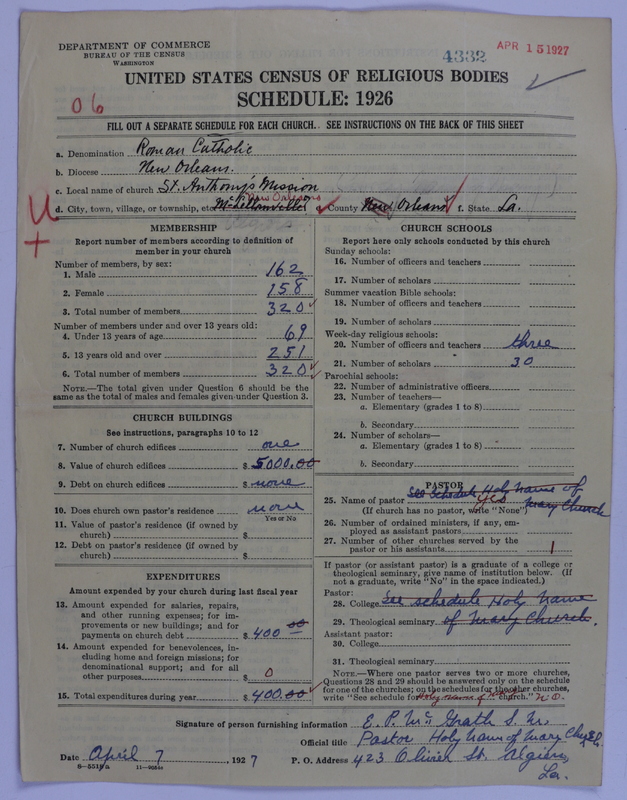 DEPARTMENT OF COMMERCE
BUREAU OF THE CENSUS
WASHINGTON
4332
APR 15 1927
UNITED STATES CENSUS OF RELIGIOUS BODIES
SCHEDULE: 1926
06
FILL OUT A SEPARATE SCHEDULE FOR EACH CHURCH. SEE INSTRUCTIONS ON THE BACK OF THIS SHEET
a. Denomination Roman Catholic
b. Diocese New Orleans.
c. Local name of church St. Anthony's Mission
New Orleans
d. City, town, village, or township, etc. McLellanville County New Orleans f. State La.
MEMBERSHIP
Report number of members according to definition of member in your church
Number of members, by sex:
1. Male 162
2. Female 158
3. Total number of members 320
Number of members under and over 13 years old:
4. Under 13 years of age 69
5. 13 years old and over 251
6. Total number of members 320
NOTE.—The total given under Question 6 should be the
same as the total of males and females given under Question 3.
CHURCH BUILDINGS
See instructions, paragraphs 10 to 12
7. Number of church edifices one
8. Value of church edifices $ 5000.00
9. Debt on church edifices $ none
10. Does church own pastor's residence none
Yes or No
11. Value of pastor's residence (if owned by
church) $
12. Debt on pastor's residence (if owned by
church) $
EXPENDITURES
Amount expended by your church during last fiscal year
13. Amount expended for salaries, repairs,
and other running expenses; for im-
provements or new buildings; and for
payments on church debt $ 400 00
14. Amount expended for benevolences, in-
cluding home and foreign missions; for
denominational support; and for all
other purposes $ 0
15. Total expenditures during year $ 400.00
CHURCH SCHOOLS
Report here only schools conducted by this church
Sunday schools:
16. Number of officers and teachers
17. Number of scholars
Summer vacation Bible schools:
18. Number of officers and teachers
19. Number of scholars
Week-day religious schools:
20. Number of officers and teachers three
21. Number of scholars 30
Parochial schools:
22. Number of administrative officers
23. Number of teachers—
a. Elementary (grades 1 to 8)
b. Secondary
24. Number of scholars—
a. Elementary (grades 1 to 8)
b. Secondary
PASTOR
25. Name of pastor See Schedule Holy Name of
(If church has no pastor, write "None") yes Mary Church
26. Number of ordained ministers, if any, em-
ployed as assistant pastors
27. Number of other churches served by the
pastor or his assistants 1
If pastor (or assistant pastor) is a graduate of a college or
theological seminary, give name of institution below. (If
not a graduate, write "No" in the space indicated.)
Pastor:
28. College See schedule Holy Name
29. Theological seminary of Mary Church.
Assistant pastor:
30. College
31. Theological seminary
NOTE.—Where one pastor serves two or more churches,
Questions 28 and 29 should be answered only on the schedule
for one of the churches; on the schedules for the other churches,
write "See schedule for Holy Name of Mary church." N.O.
Signature of person furnishing information E. P. McGrath S. M.
Official title Pastor Holy Name of Mary Church
Date April 7, 1927 P. O. Address 423 Olivier St. Algiers,
La.